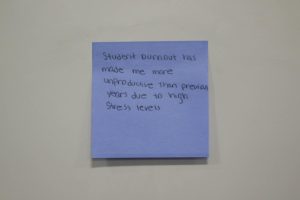 Student burnout has
made me more
unproductive than previous
years due to high
stress levels